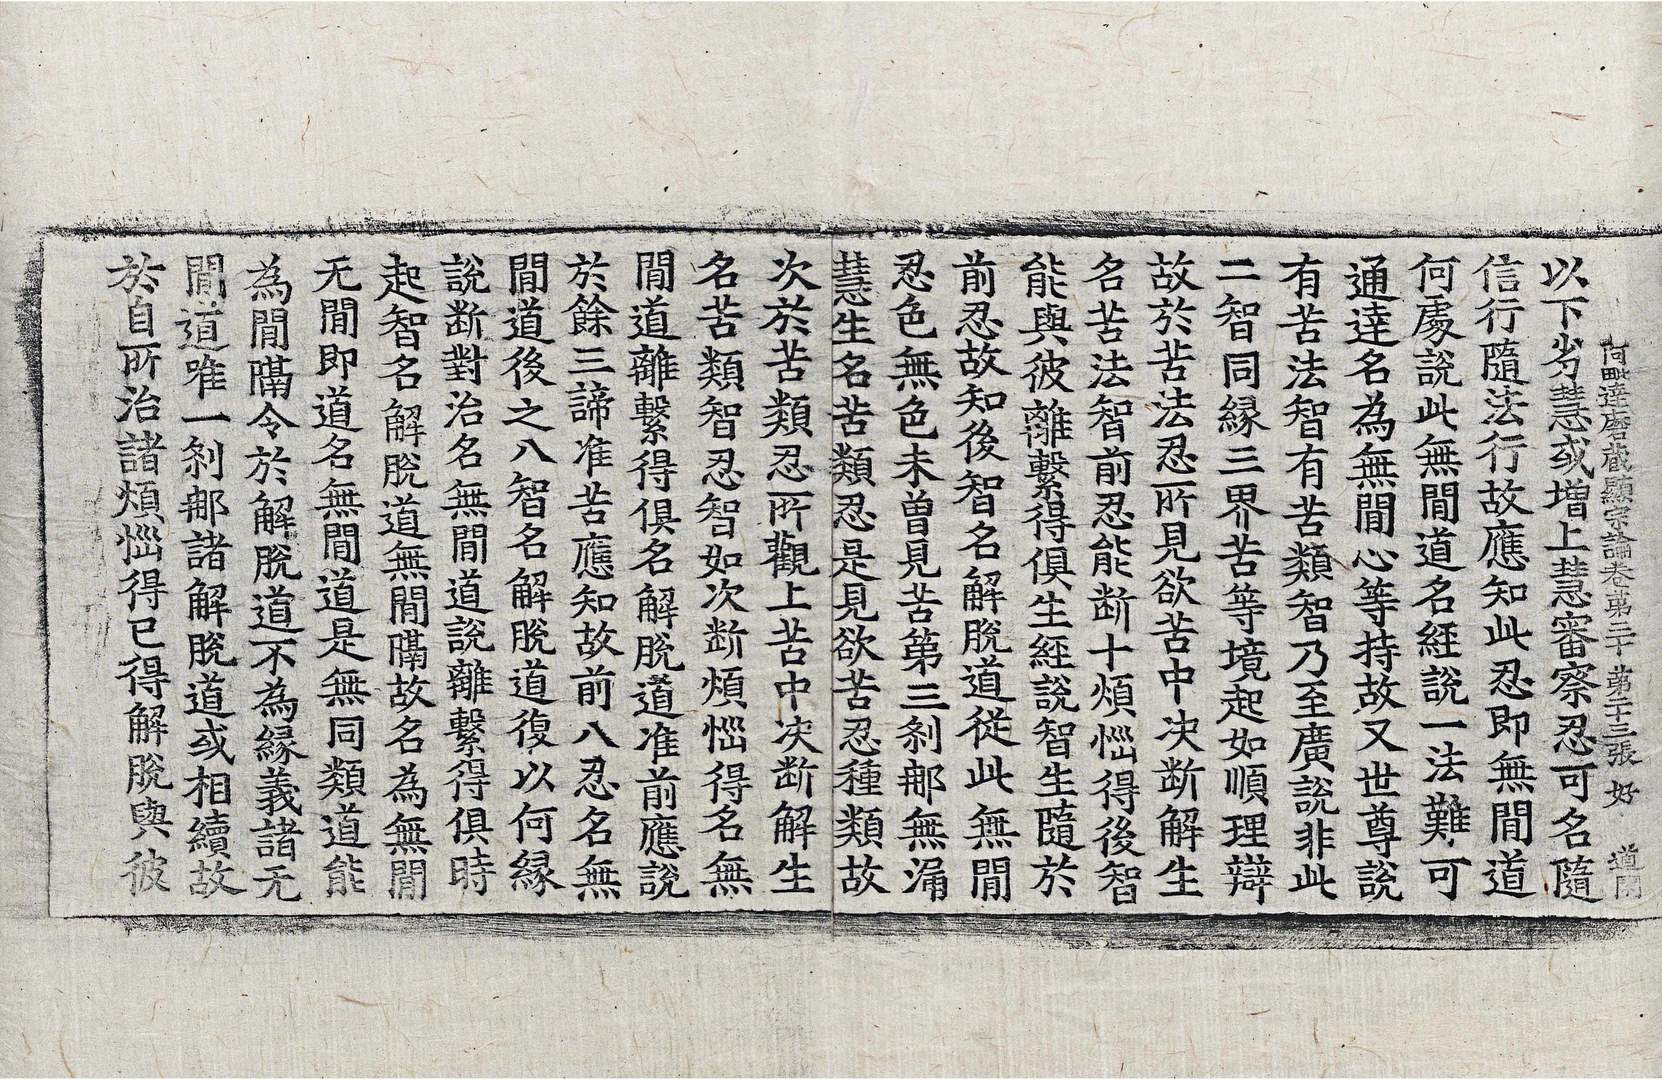 阿毗達磨藏顯宗論卷第三十 第二十三張 好 道開
以下劣慧或增上慧審察忍可名隨
信行隨法行故應知此忍即無閒道
何處說此無閒道名經說一法難可
通達名為無閒心等持故又世尊說
有苦法智有苦類智乃至廣說非此
二智同緣三界苦等境起如順理辯
故於苦法忍所見欲苦中決断解生
名苦法智前忍能断十煩惱得後智
能與彼離繫得俱生經說智生隨於
前忍故知後智名解脫道從此無閒
忍色無色未曾見苦第三剎那無漏
慧生名苦類忍是見欲苦忍種類故
次於苦類忍所觀上苦中決断解生
名苦類智忍智如次断煩惱得名無
閒道離繫得俱名解脫道准前應說
於餘三諦准苦應知故前八忍名無
閒道後之八智名解脫道復以何緣
說断對治名無閒道說離繫得俱時
起智名解脫道無閒隔故名為無閒
无閒即道名無閒道是無同類道能
為閒隔令於解脫道不為緣義諸无
閒道唯一剎那諸解脫道或相續故
於自所治諸煩惱得已得解脫與彼